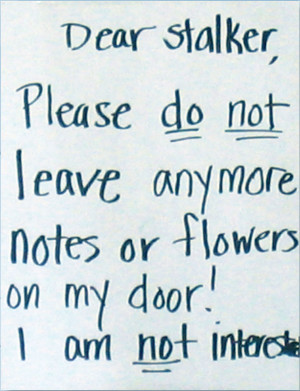 Dear stalker,
Please do not
leave anymore
notes or flowers
on my door!
I am not